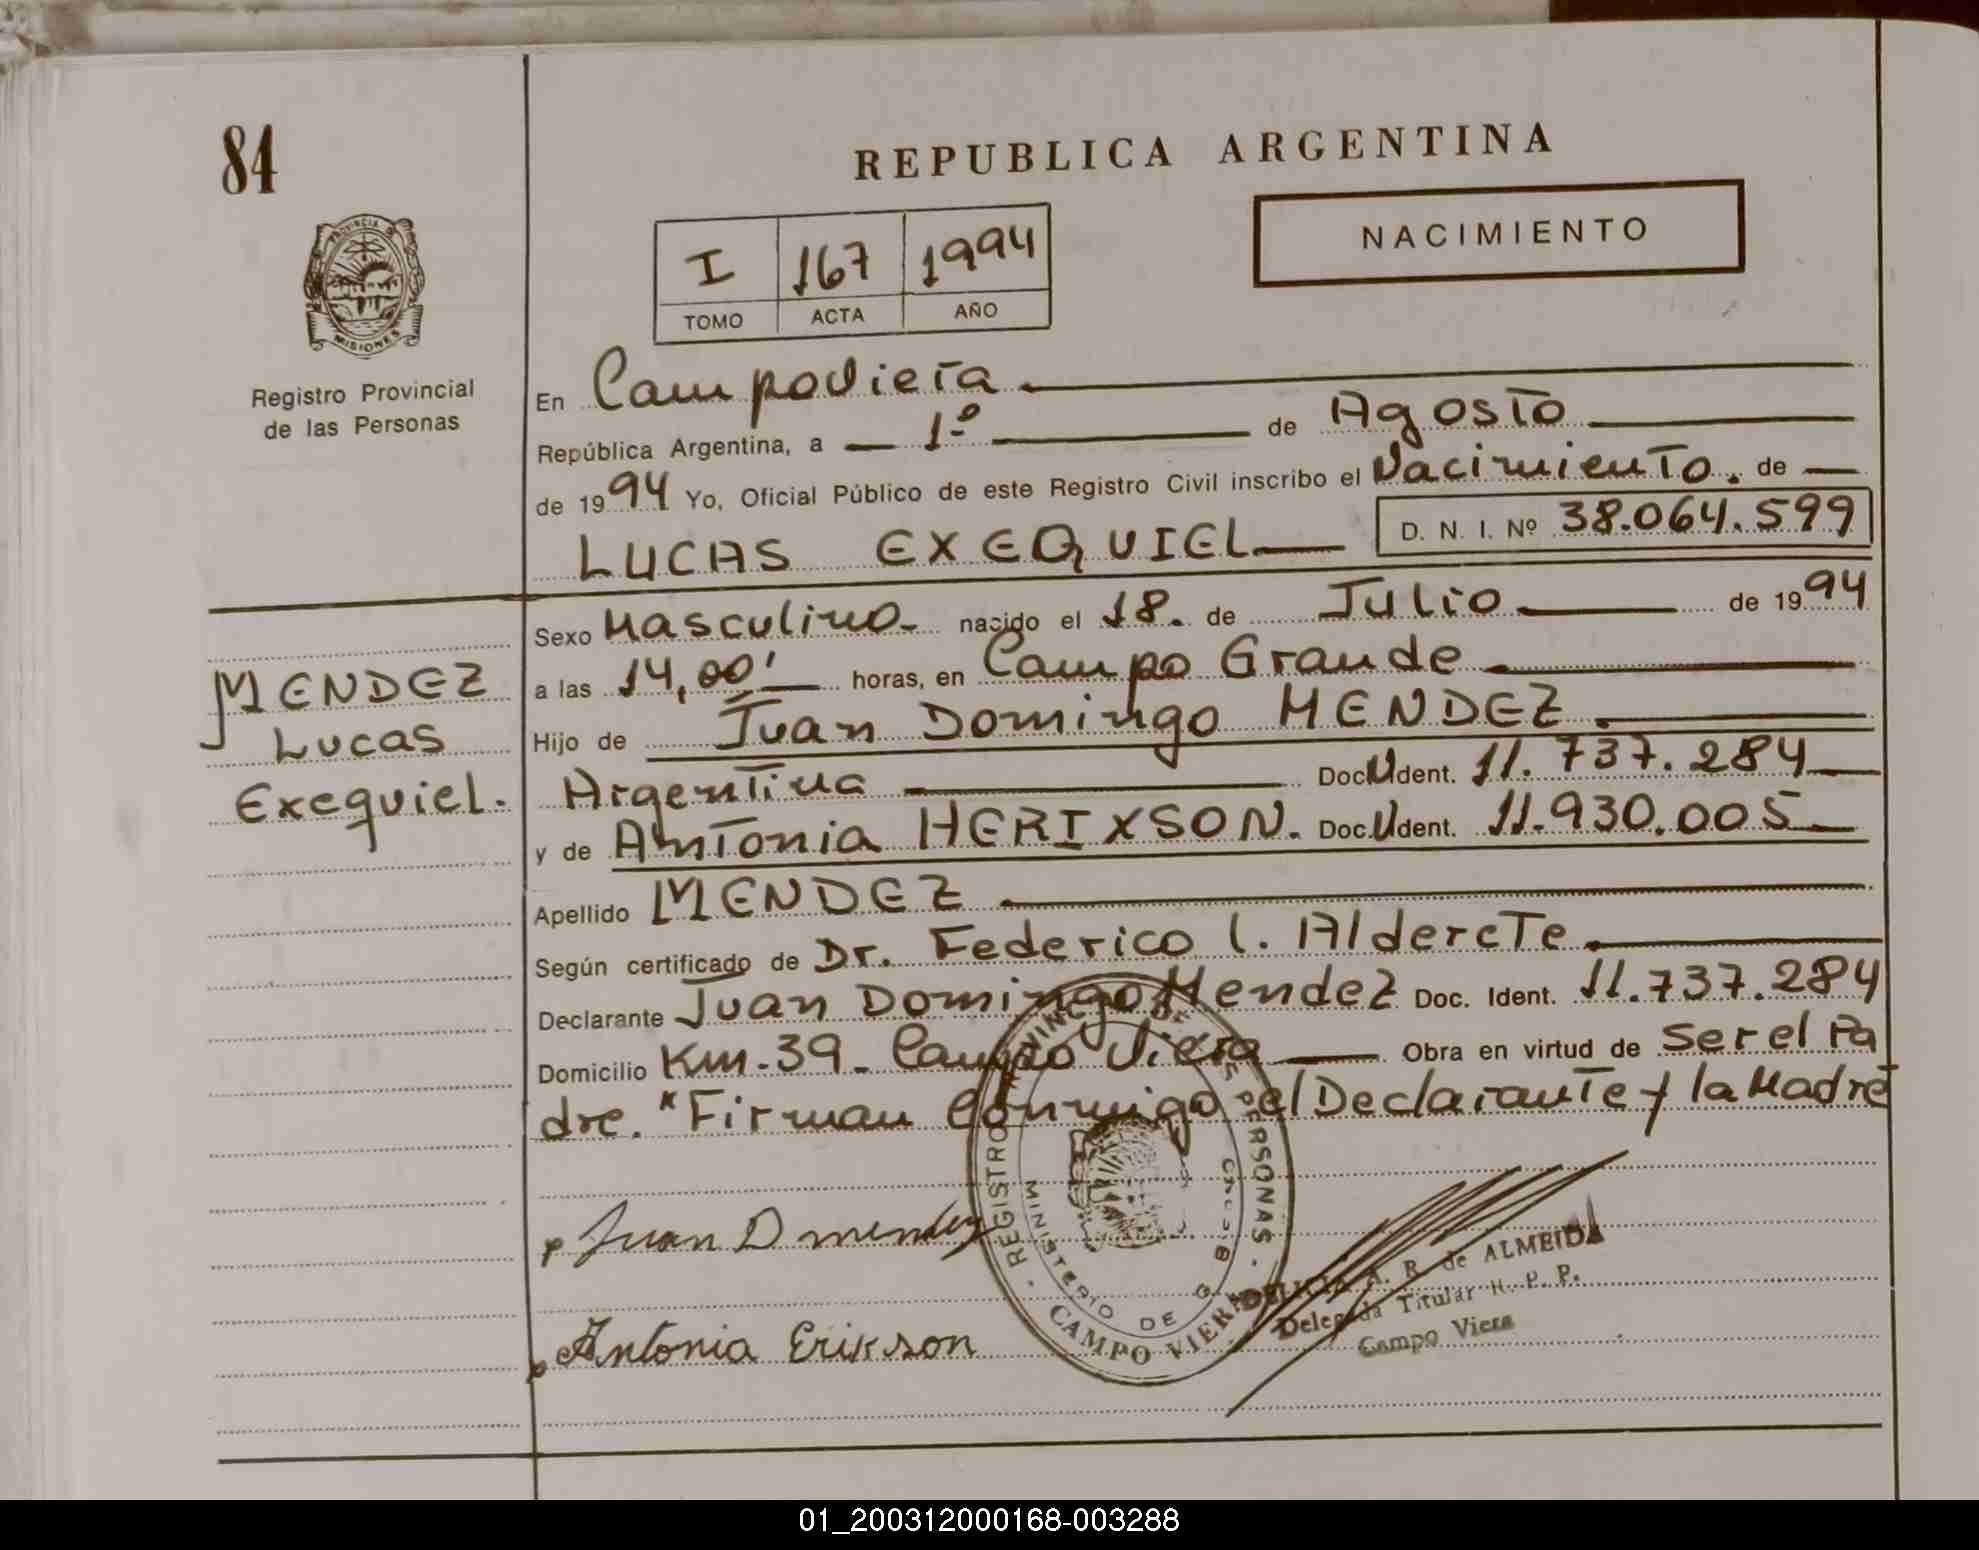 84
REPUBLICA ARGENTINA
NACIMIENTO
I 167 1994
TOMO ACTA AÑO
PROVINCIA DE
MISIONES
Registro Provincial
de las Personas
En Campoviera
República Argentina, a 1º de Agosto
de 1994 Yo, Oficial Público de este Registro Civil inscribo el Nacimiento. de
LUCAS EXEQUIEL D. N. I. Nº 38.064.599
Sexo Masculino nacido el 18. de Julio de 1994
a las 14,00' horas, en Campo Grande
Hijo de Juan Domingo MENDEZ.
Argentina Doc. U Ident. 11.737.284
y de Antonia HERIXSON. Doc. U Ident. 11.930.005
Apellido MENDEZ
Según certificado de Dr. Federico l. Alderete
Declarante Juan Domingo Mendez Doc. Ident. 11.737.284
Domicilio Km.39 Campo Viera Obra en virtud de Ser el Pa
dre. "Firman Conmigo el Declarante y la Madre
MENDEZ
Lucas
Exequiel.
Juan D mendez
Antonia Erikson
REGISTRO DE LAS PERSONAS
MINISTERIO DE
CAMPO VIERA
A. R. de ALMEIDA
Delegada Titular R. P. P.
Campo Viera
01_200312000168-003288